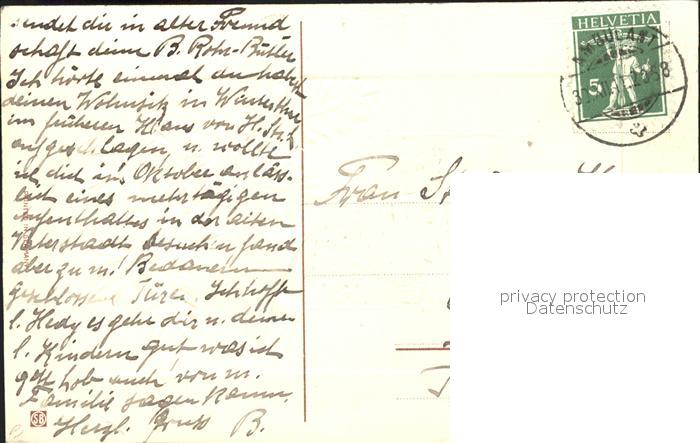 sendet dir in alter Freund
schaft deine B. Rohr-Bütler
Ich hörte einmal du habest
deinen Wohnsitz in Winterthur
im früheren Haus von H.
aufgeschlagen, u. wollte
ich dich im Oktober anläss-
lich eines mehrtägigen
Aufenthaltes in der alten
Vaterstadt besuchen fand
aber zu m. Bedauern
geschlossene Türe. Ich hoffe
l. Hedy es gehe dir u. deinen
l. Kindern gut was ich
gottlob auch von m.
Familie sagen kann.
Herzl. Gruss B.
HELVETIA
5
AMBULANT
Frau
privacy protection
Datenschutz
SB